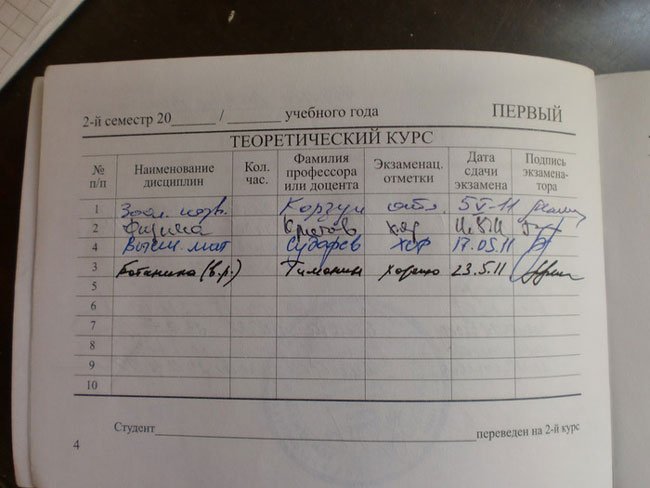 2-й семестр 20______ / _______ учебного года ПЕРВЫЙ
ТЕОРЕТИЧЕСКИЙ КУРС
№ п/п Наименование дисциплин Кол. час. Фамилия профессора или доцента Экзаменац. отметки Дата сдачи экзамена Подпись экзамена-тора
1 Зоол. позв. Коргун отл. 5 VI-11
2 Физика хор
4 Высш. мат Сударев хор 17.05.11
3 Ботаника (в.р.) Тиманин хорошо 23.5.11
5
6
7
8
9
10
Студент переведен на 2-й курс
4